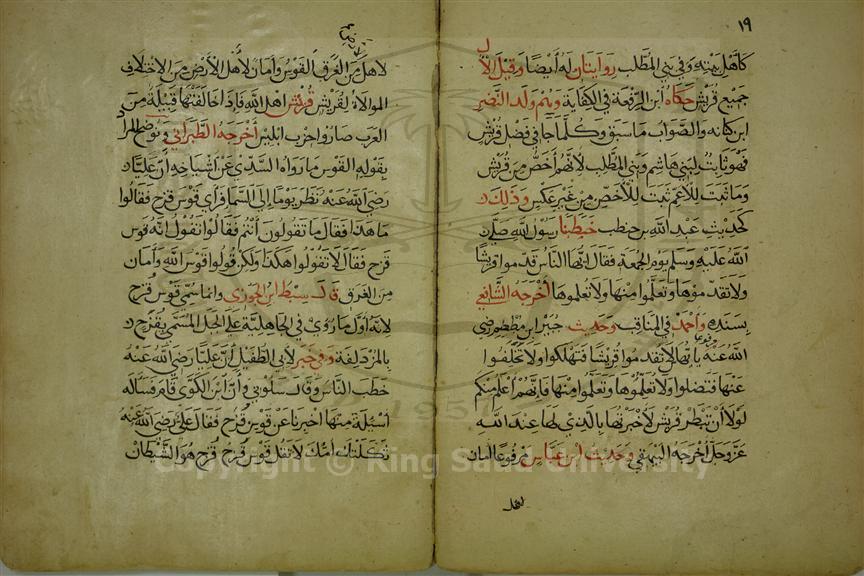 ١٩
كاهل بيته وفي بني المطلب روايتان له أيضا وقيل الال
جميع قريش حكاه ابن الرفعة في الكفاية وهم ولد النضر
ابن كنانه والصواب ما سبق وكلما جا في فضل قريش
فهو ثابت لبني هاشم وبني المطلب لانهم أخص من قريش
وما ثبت للأعم ثبت للأخص من غير عكس وذلك
كحديث عبد الله بن حنطب خطبنا رسول الله صلى
الله عليه وسلم يوم الجمعة فقال ايها الناس قدموا قريشا
ولا تقدموها وتعلموا منها ولا تعلموها أخرجه الشافعي
بسنده وأحمد في المناقب وحديث جبير ابن مطعم رضي
الله عنه يا ايها الناس لا تقدموا قريشا فتهلكوا ولا تخلفوا
عنها فتضلوا ولا تعلموها وتعلموا منها فانهم أعلم منكم
لولا أن تبطر قريش لأخبرتها بالذي لها عند الله
عز وجل أخرجه البيهقي وحديث ابن عباس مرفوعا امان
لاهل
لاهل الأرض من الغرق القوس وأمان لأهل الأرض من الاختلاف
الموالاة لقريش قريش اهل الله فاذا خالفتها قبيلة من
العرب صاروا حزب ابليس أخرجه الطبراني وتوضح المراد
بقوله القوس ما رواه السدي عن أشياخه أن عليا
رضي الله عنه نظر يوما إلى السما فرأي قوس قزح فقالوا
ما هذا فقال ما تقولون أنتم فقالوا نقول انه قوس
قزح فقال لا تقولوا هكذا ولكن قولوا قوس الله وأمان
من الغرق قال سبط ابن الجوزي وانما سمي قوس قزح
لانه أول ما رؤي في الجاهلية على الجبل المسمى بقزح
بالمزدلفة وفي خبر لأبي الطفيل أن عليا رضي الله عنه
خطب الناس وقال سلوني وأن ابن الكوى قام فسأله
أسئلة منها اخبرنا عن قوس قزح فقال علي رضي الله عنه
ثكلتك أمك لا تقل قوس قزح قزح هو الشيطان
1957
Copyright © King Saud University